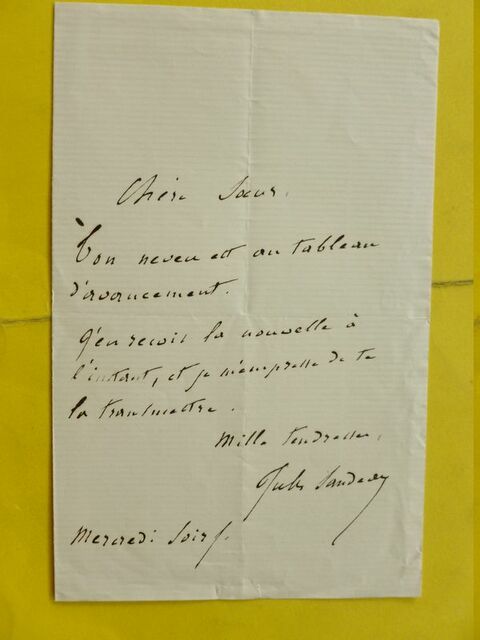 Chère Sœur,
Ton neveu est au tableau
d'avancement.
J'en reçois la nouvelle à
l'instant, et je m'empresse de te
la transmettre.
Mille tendresses,
Jules Sandeau
Mercredi Soir.